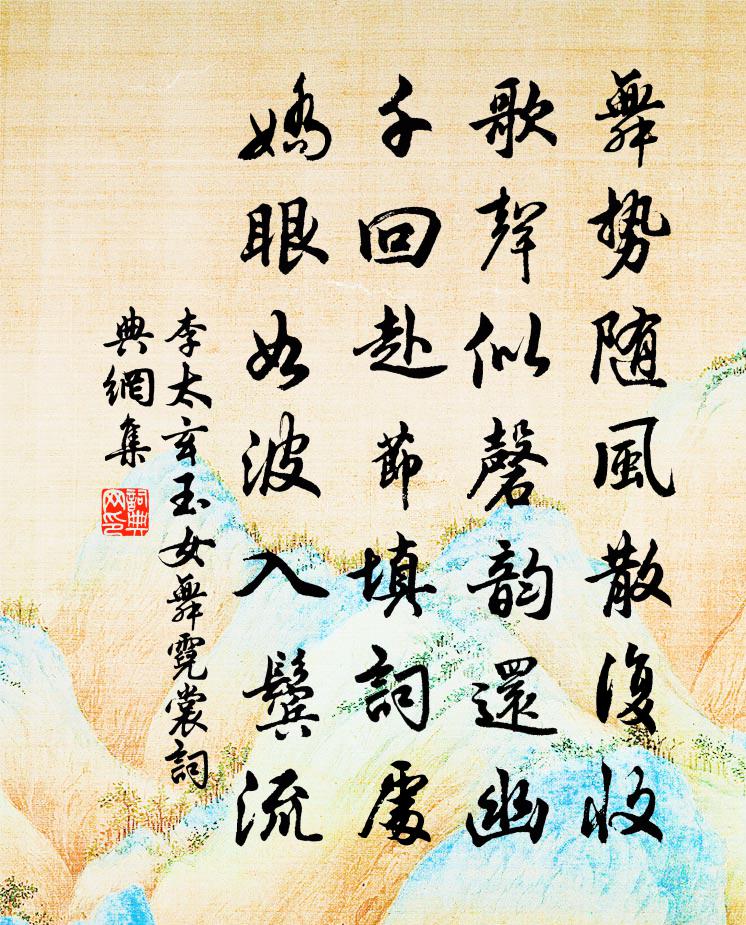 舞势随風散復收
歌聲似磬韵還幽
千回赴節填詞處
嬌眼如波入鬢流
李太玄玉女舞霓裳詞
典網集
詞典网印